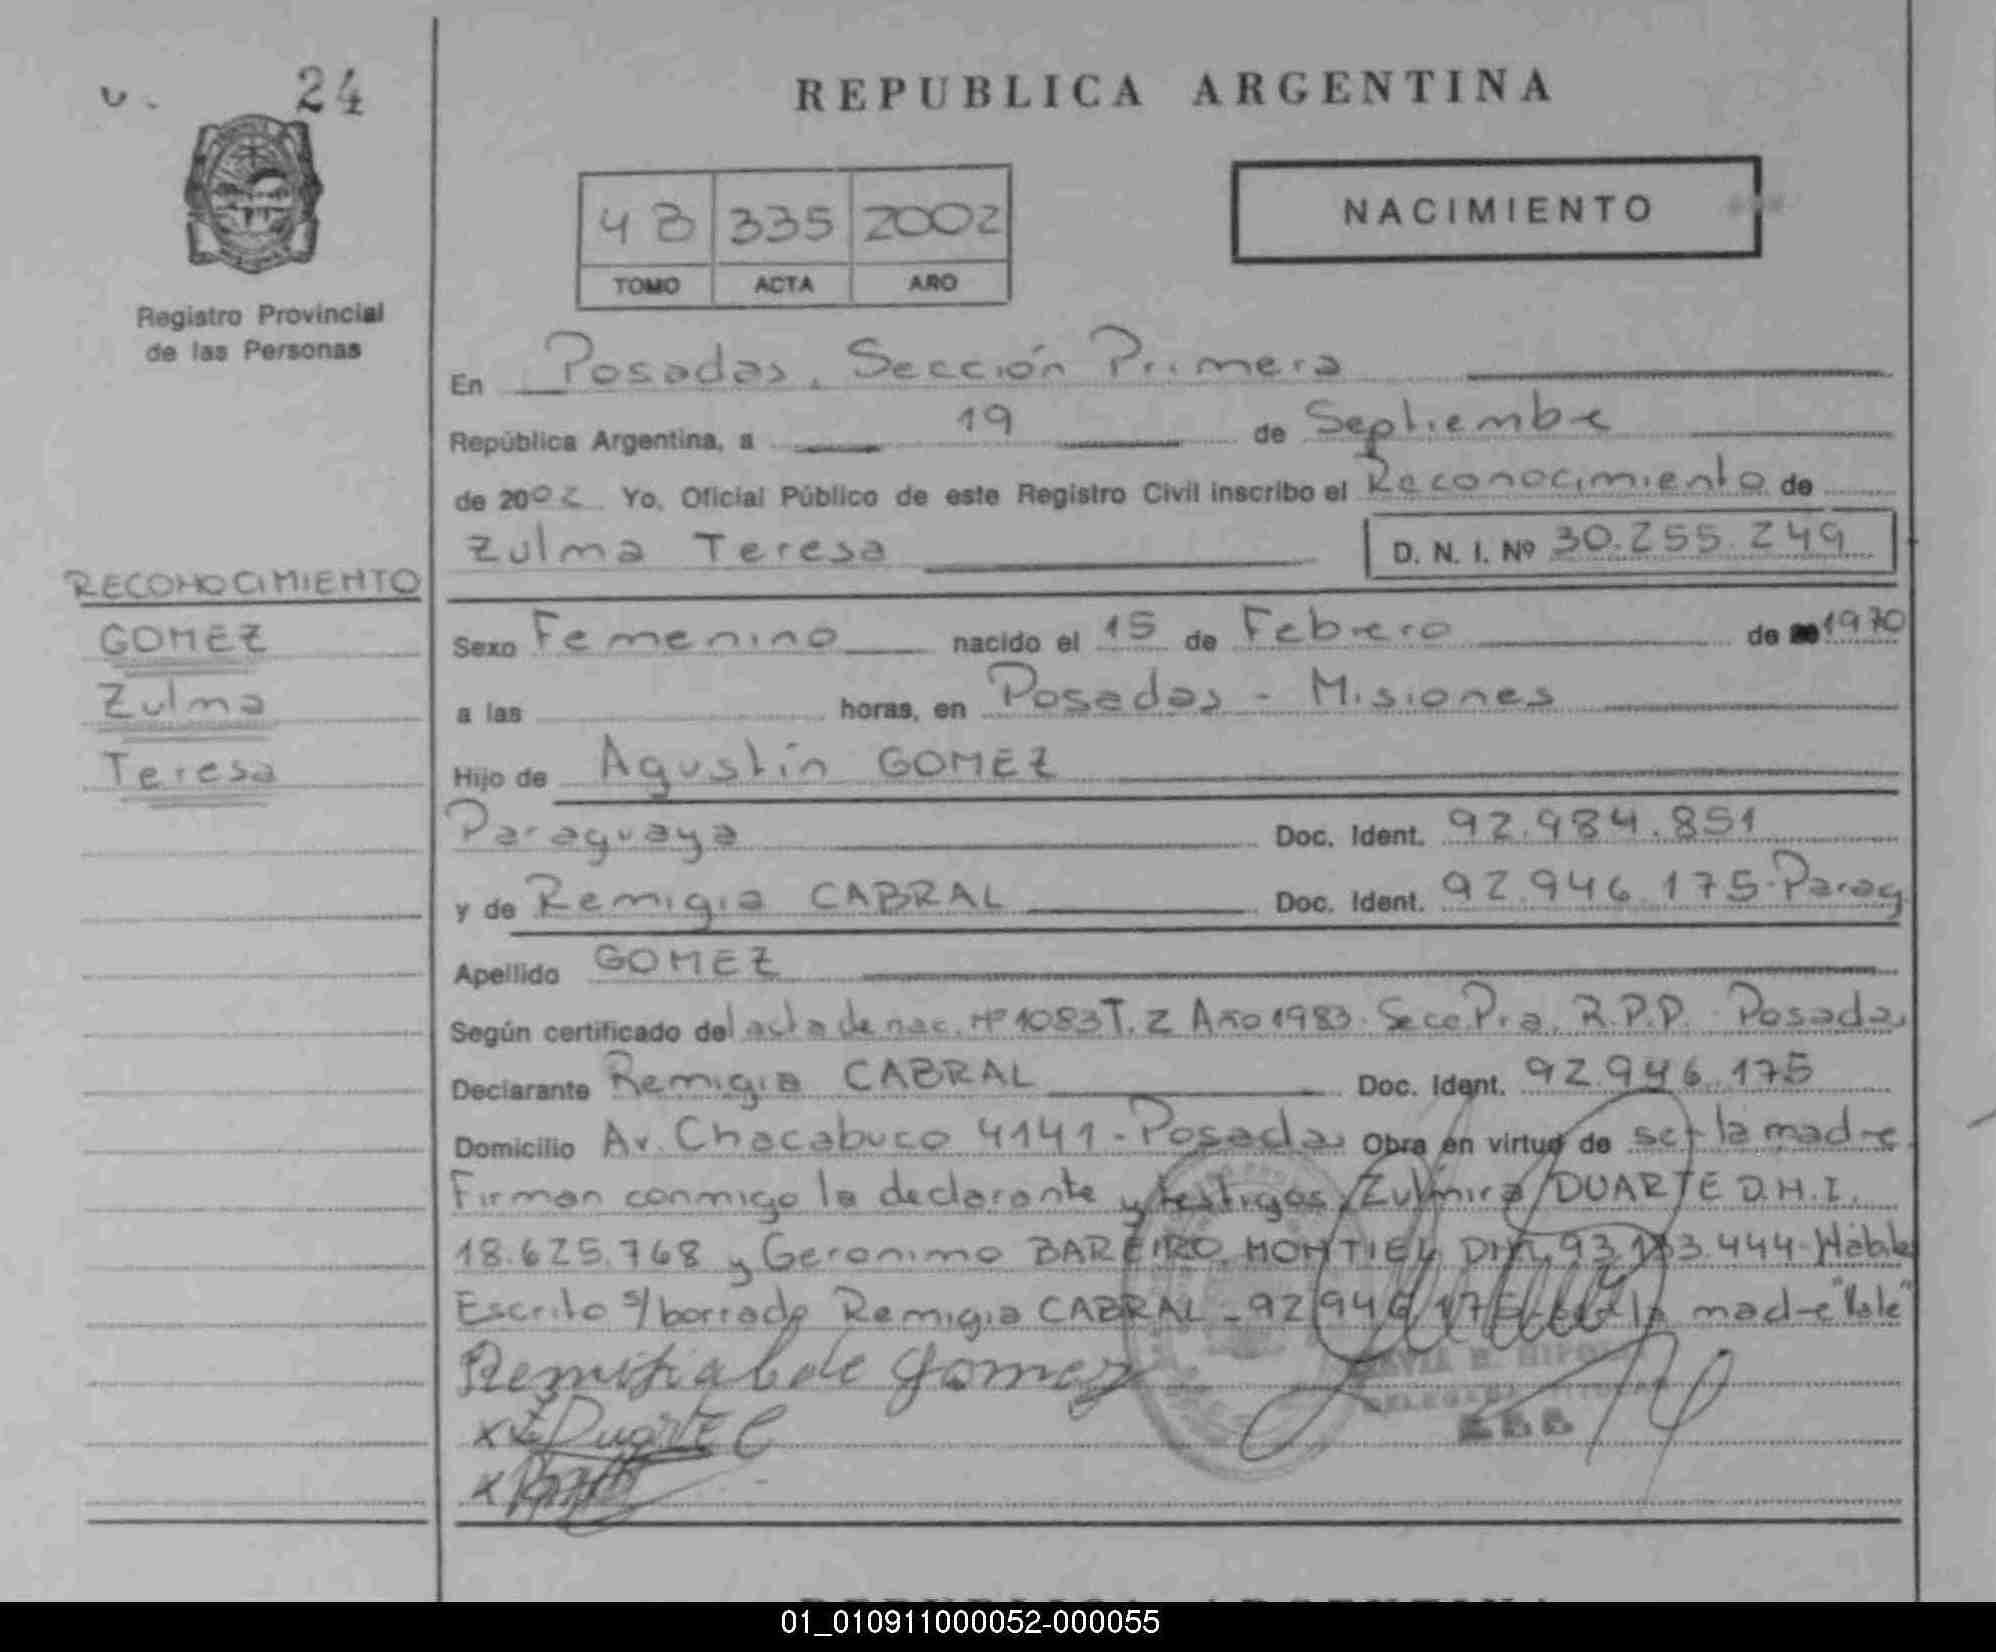 24
REPUBLICA ARGENTINA
NACIMIENTO
4 B 335 2002
TOMO ACTA AÑO
Registro Provincial
de las Personas
En Posadas, Sección Primera
República Argentina, a 19 de Septiembre
de 2002 Yo, Oficial Público de este Registro Civil inscribo el Reconocimiento de
Zulma Teresa D. N. I. Nº 30.255.249
RECONOCIMIENTO
GOMEZ
Zulma
Teresa
Sexo Femenino nacido el 15 de Febrero de 1970
a las horas, en Posadas - Misiones
Hijo de Agustín GOMEZ
Paraguaya Doc. Ident. 92.984.851
y de Remigia CABRAL Doc. Ident. 92.946.175-Parag
Apellido GOMEZ
Según certificado del acta de nac. Nº 1083 T. 2 Año 1983. Secc Pra. R.P.P. Posadas
Declarante Remigia CABRAL Doc. Ident. 92.946.175
Domicilio Av. Chacabuco 4141-Posadas Obra en virtud de ser la madre
Firman conmigo la declarante y testigos Zulmira DUARTE D.N.I.
18.625.768 y Geronimo BAREIRO MONTIEL DNI 93. 3.444-Hábiles
Escrito s/borrado Remigia CABRAL - 92.946.175- la madre "Vale"
Remigia de Gomez
x Z Duarte C
x
01_010911000052-000055